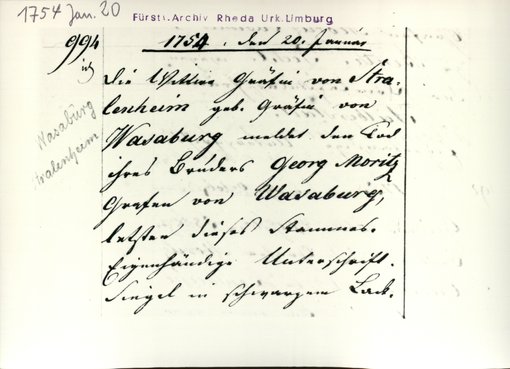 1754 Jan. 20
Fürstl. Archiv Rheda Urk. Limburg
994
1754. den 20. Januar
Die Wittwe Gräfin von Stra-
lenheim geb. Gräfin von
Wasaburg meldet den Tod
ihres Bruders Georg Moritz
Grafen von Wasaburg,
letzter dieses Stammes.
Eigenhändige Unterschrift.
Siegel in schwarzem Lack.
Wasaburg
Stralenheim